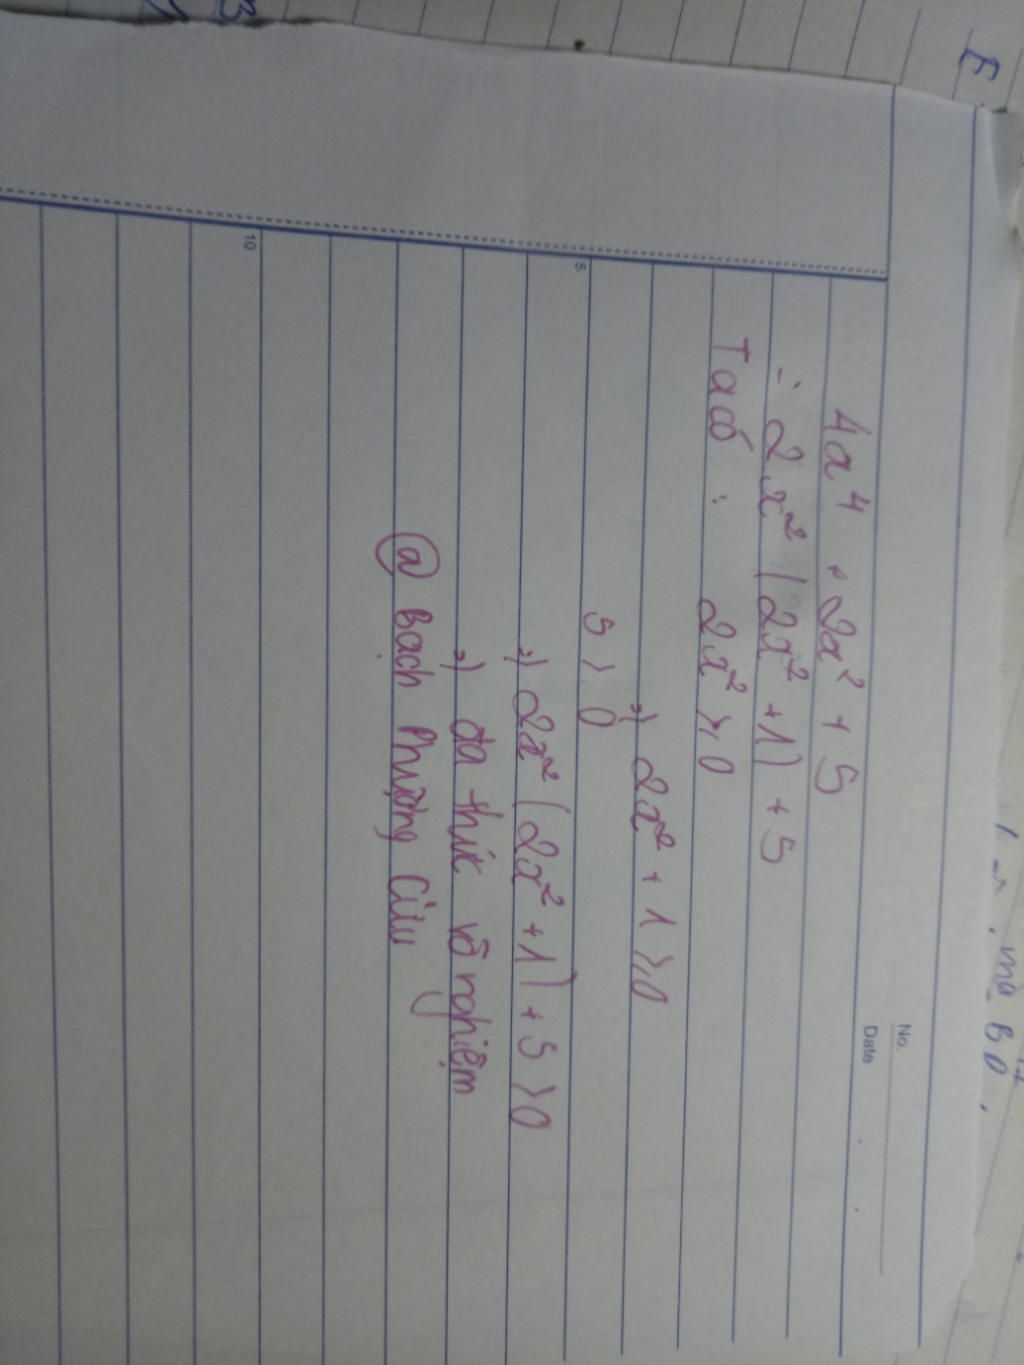 No.
Date
4x⁴ + 2x² + 5
= 2x² (2x² + 1) + 5
Ta có : 2x² ⩾ 0
=) 2x² + 1 ⩾ 0
5 > 0
=) 2x² (2x² + 1) + 5 > 0
=) đa thức vô nghiệm
@ Bạch Phượng Cửu
5
10